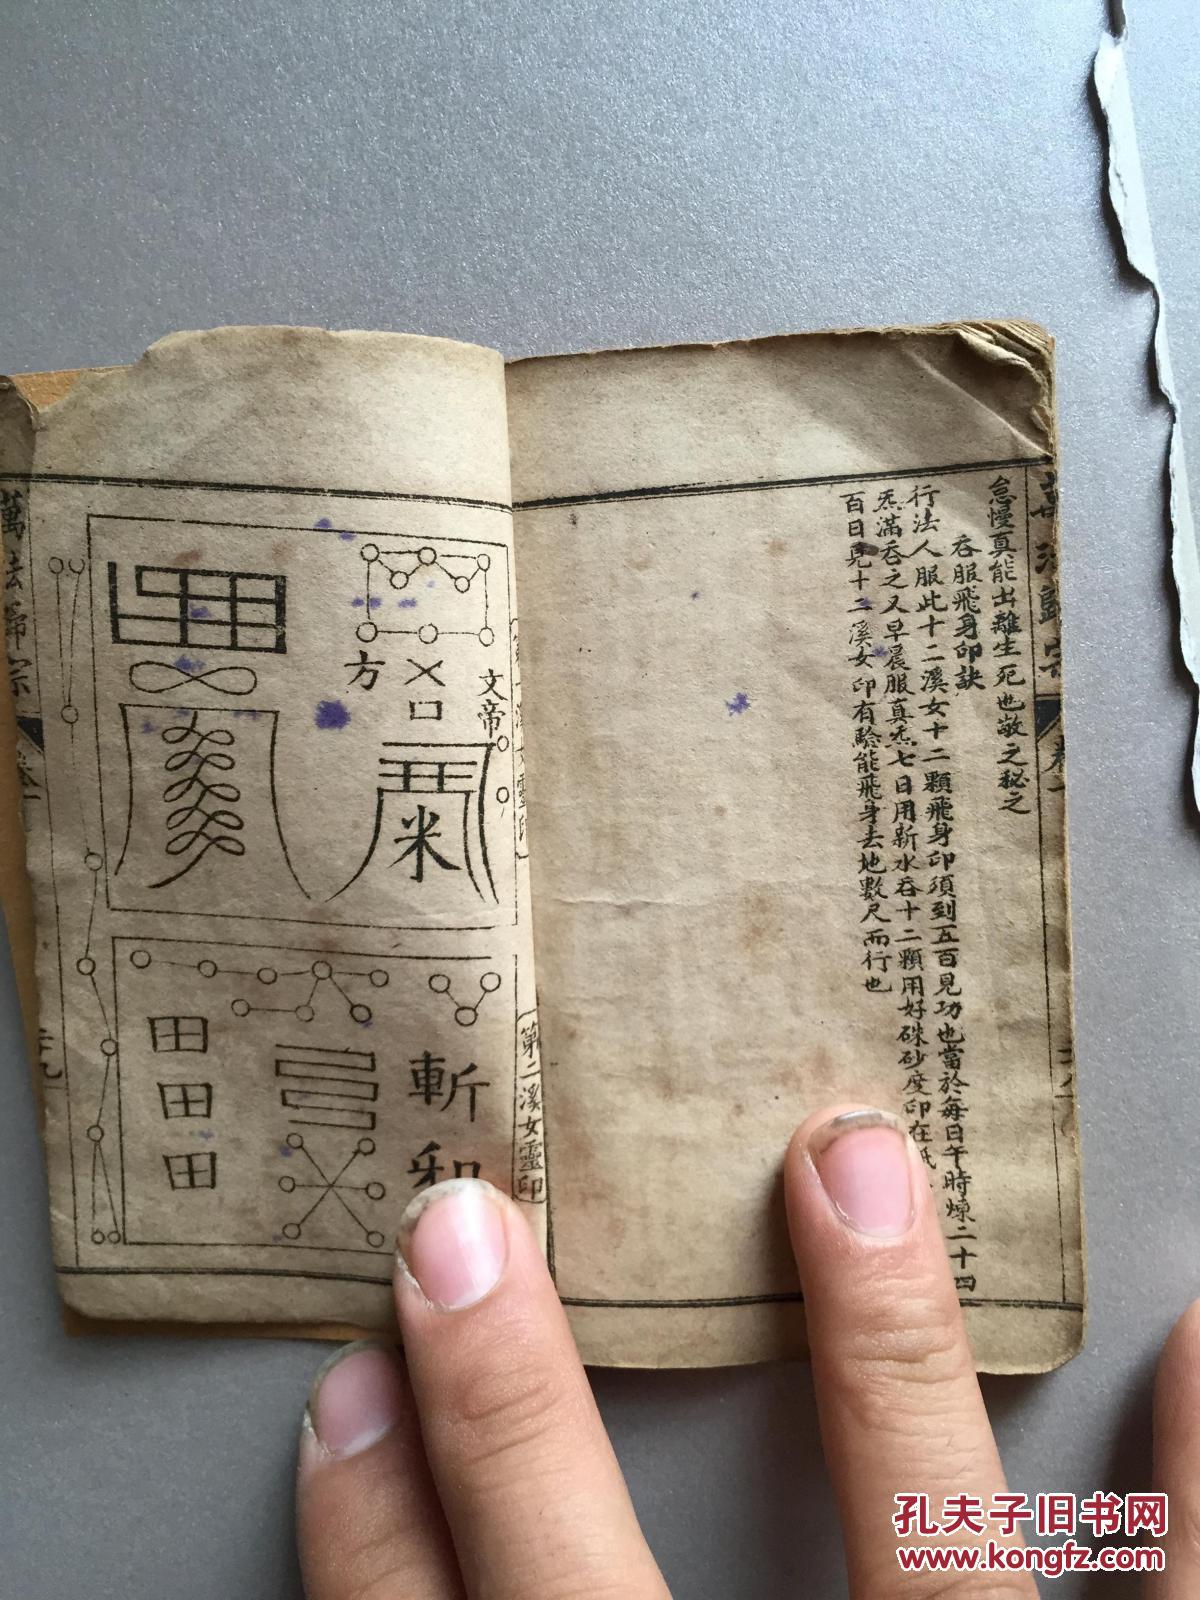 萬法歸宗
卷一
怠慢真能出離生死也敬之秘之
吞服飛身印訣
行法人服此十二溪女十二顆飛身印須到五百見功也當於每日午時煉二十四
炁滿吞之又早晨服真炁七日用新水吞十二顆用好硃砂度印在紙
百日見十二溪女印有驗能飛身去地數尺而行也
第一溪女靈印
文帝
方
米
第二溪女靈印
斬
和
田
田
田
萬法歸宗
卷一
孔夫子旧书网
www.kongfz.com